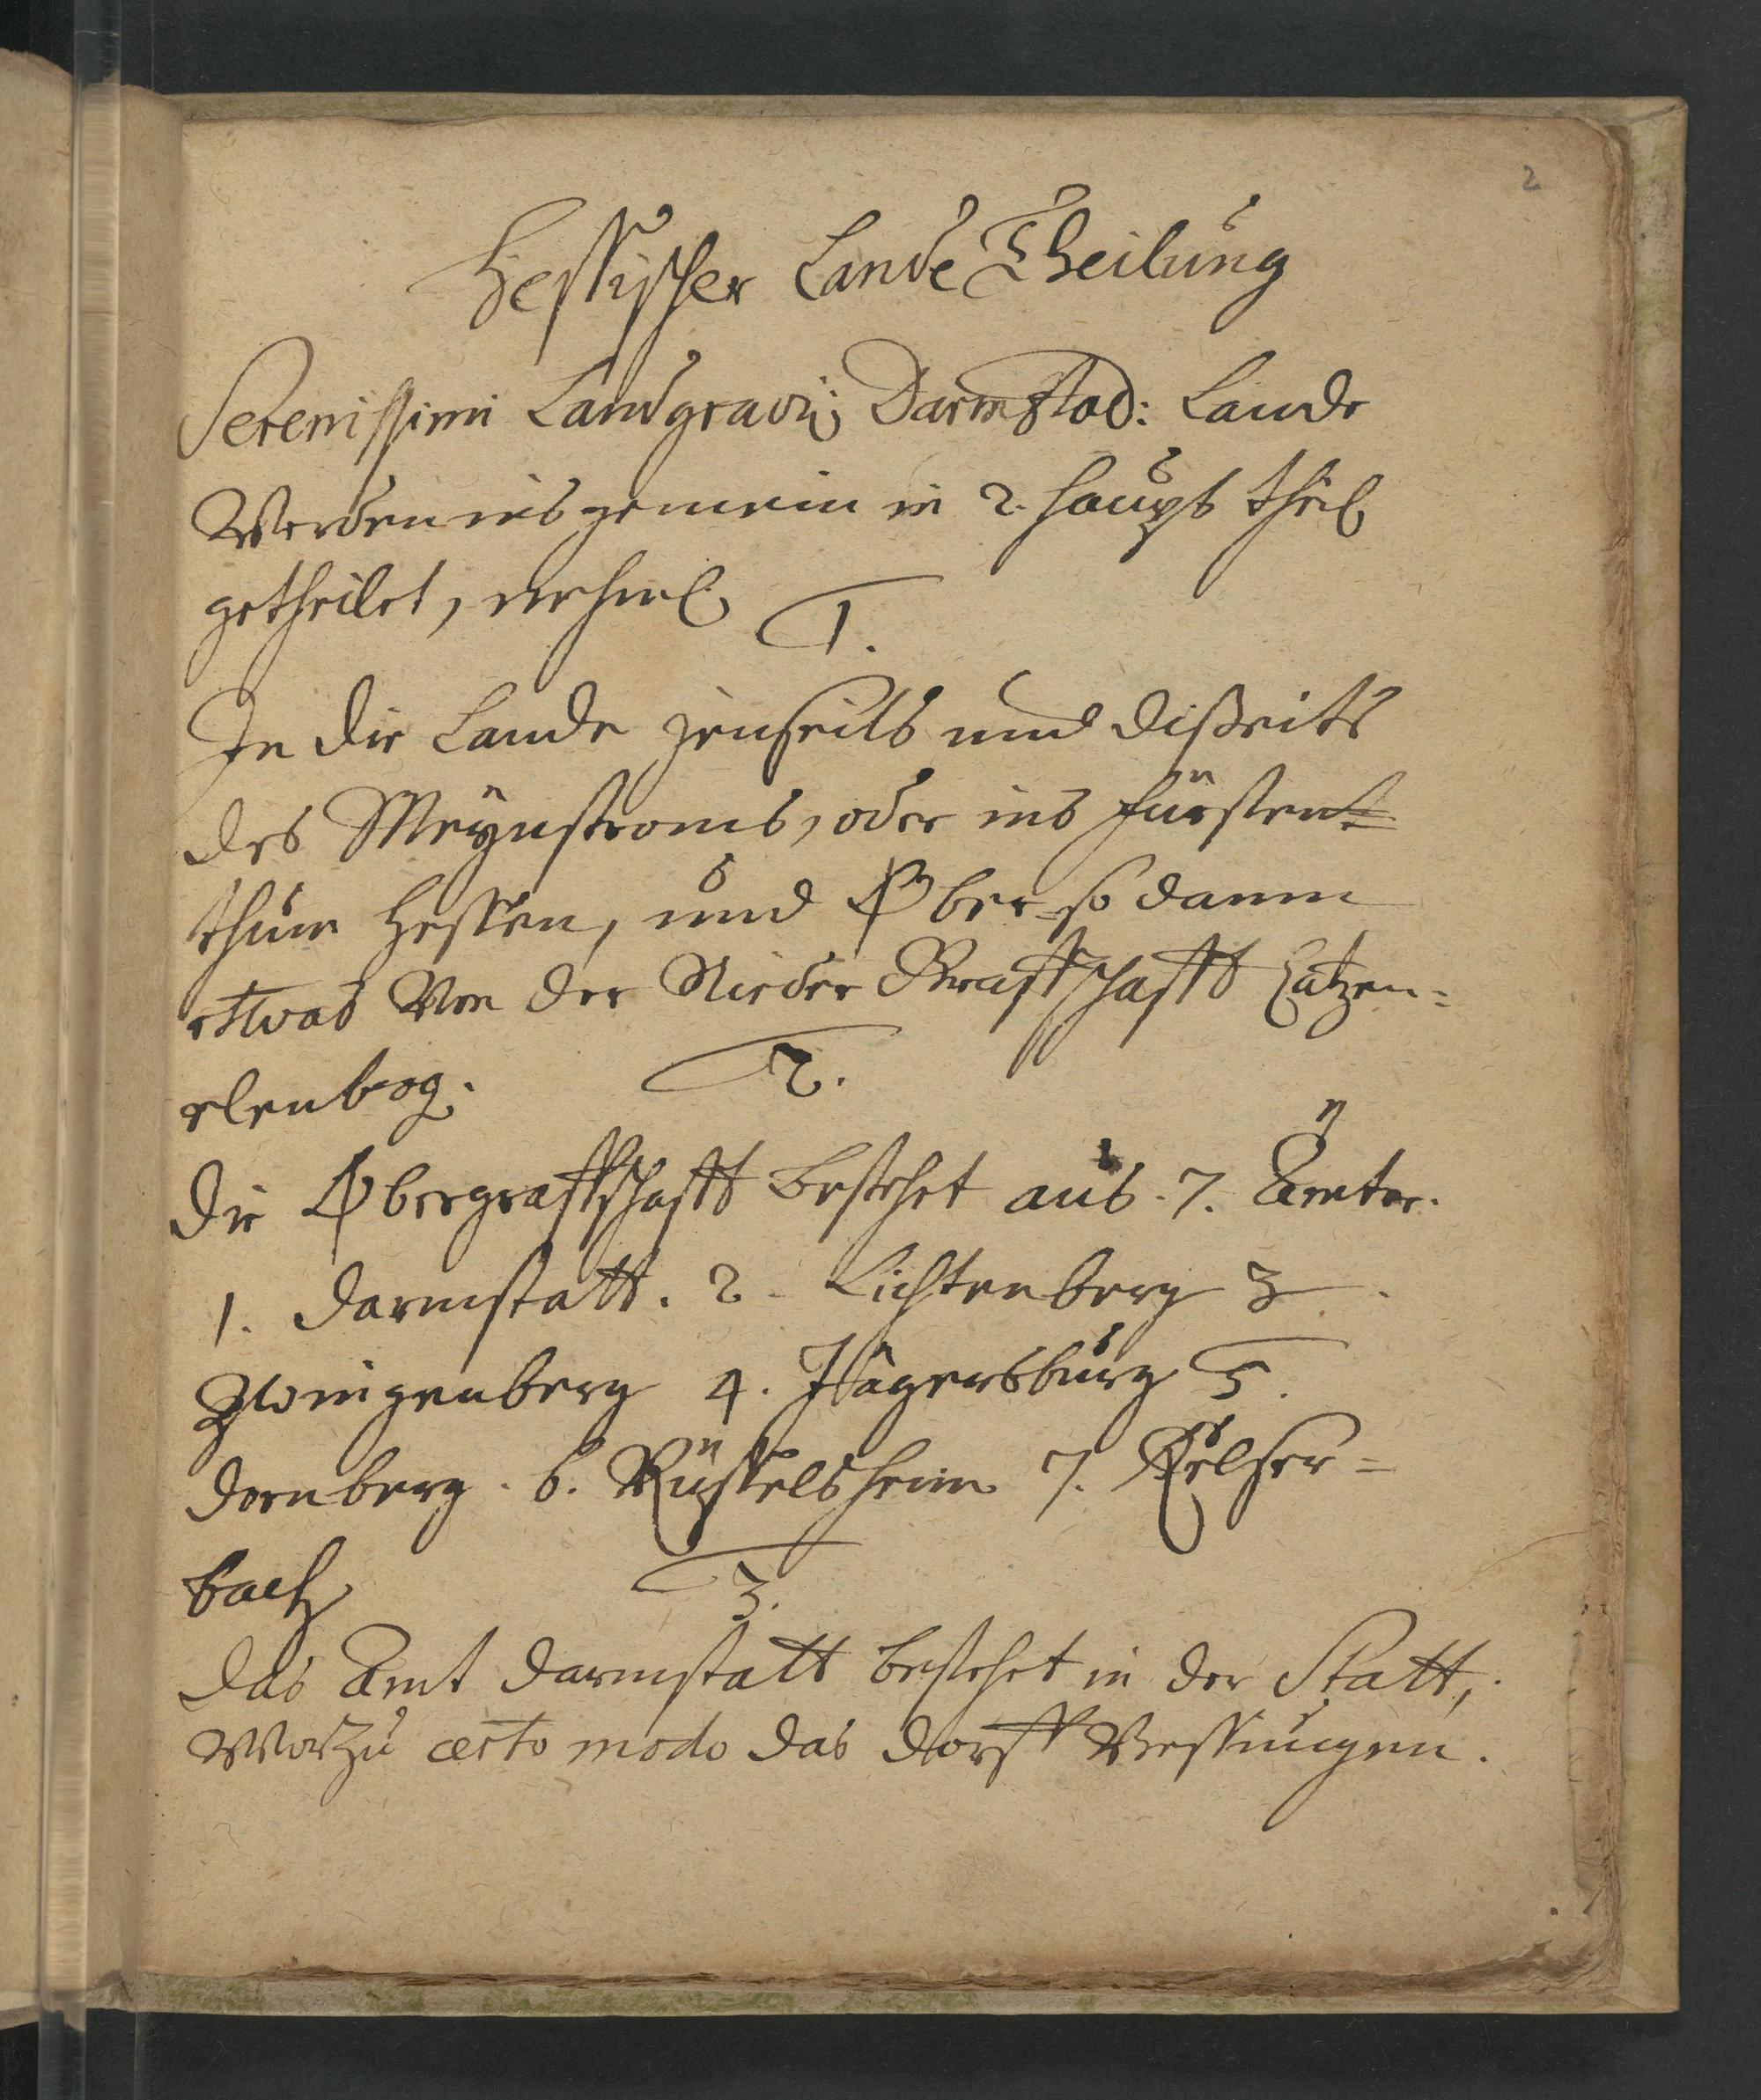 2
Hessischer Lande Theilung
Serenissimi Landgravij Darmstad: Lande
Werden ins gemein in 2. haupt theil
getheilet, nehml.
1.
In die Lande jenseits und dißeits
des Meÿnstroms, oder ins fürsten=
thum Hessen, und Ober- so dann
etwas Von der Nieder Graffschafft Catzen=
elenbog.
2.
Die Obergraffschafft bestehet aus 7. Ämter.
1. Darmstatt. 2. Lichtenberg 3.
Zwingenberg 4. Jägersburg 5.
Dornberg. 6. Rüsselsheim 7. Kelster=
bach
3.
Das Amt Darmstatt bestehet in der Statt,
Worzu certo modo das Dorff Bessungen.